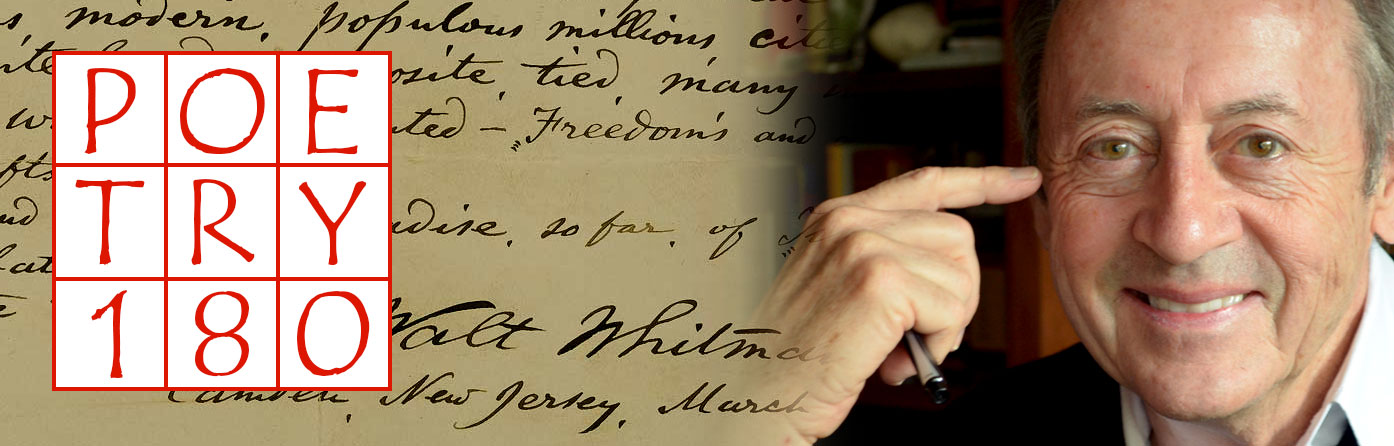 POE
TRY
180
modern, populous millions
tied, many
— „Freedom's and
so far, of
Walt Whitman
Camden, New Jersey, March